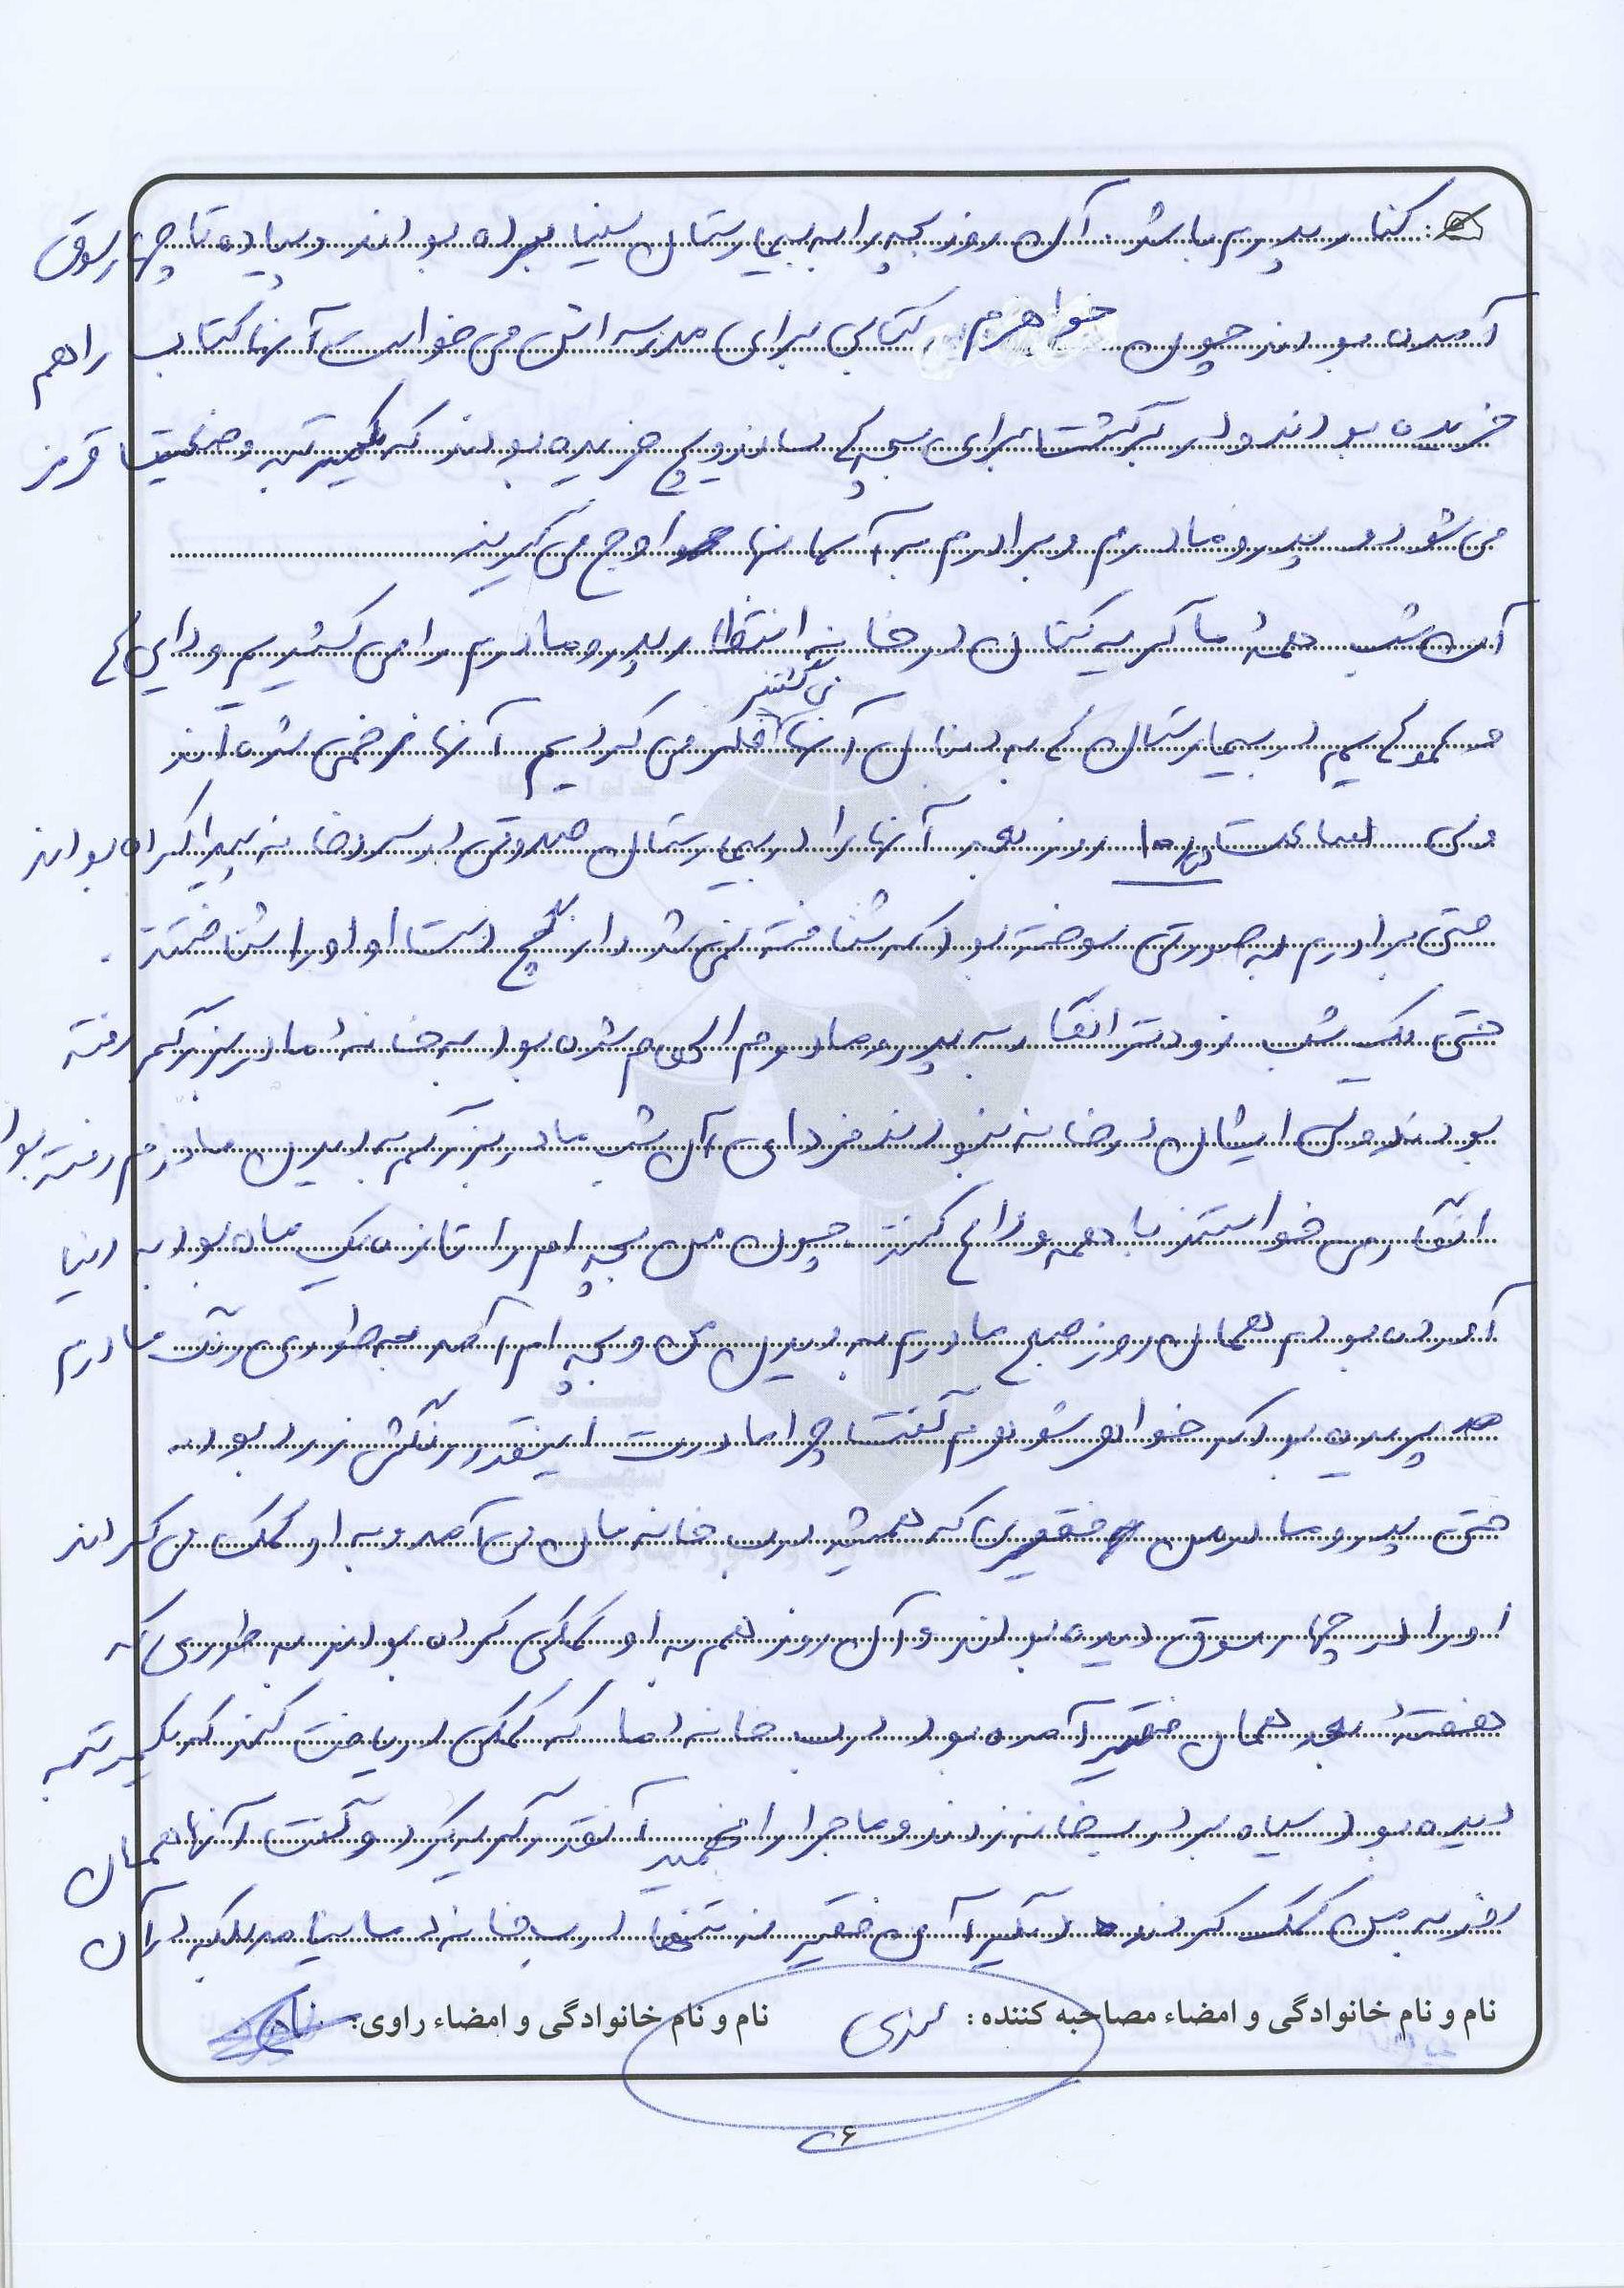 کنار پدرم باشد. آن روز بچه را به بیمارستان سینا برده بودند و پیاده تا چهارسوق
آمده بودند چون خواهرم کتابی برای مدرسه اش می خواست آنها کتاب را هم
خریده بودند و در برگشت برای بچه ها ساندویچ خریده بودند که یکمرتبه وضعیت قرمز
می شود و پدر و مادرم و برادرم به آسمانها اوج می گیرند
آن شب همهٔ ما گریه کنان در خانه انتظار پدر و مادرم را می کشیدیم و دایی ها
و عموهایم در بیمارستان ها به دنبال آنها می گشتند فکر می کردیم آنها زخمی شده اند
ولی ساعت ۱۰ روز بعد آنها را در بیمارستان صدوقی در سردخانه پیدا کرده بودند
حتی برادرم به صورتی سوخته بود که شناخته نمی شد از مچ دست او او را شناختند.
حتی یک شب زودتر انگار به پدر و مادرم الهام شده بود به خانهٔ مادربزرگم رفته
بودند ولی ایشان در خانه نبودند فردای آن شب مادربزرگم به دیدن مادرم رفته بود
انگار می خواستند با همه وداع کنند چون من بچه ام را تازه یک ماه بود به دنیا
آورده بودم همان روز صبح مادرم به دیدن من و بچه ام آمد به طوری رنگ مادرم
پریده بود که خواهر شوهرم گفت چرا مادرت اینقدر رنگش زرد بود
حتی پدر و مادرم فقیری که همیشه درب خانه مان می آمد و به او کمک می کردند
او را در چهارسوق دیده بودند و آن روز هم به او کمکی کرده بودند به طوری که
هفتهٔ بعد همان فقیر آمده بود درب خانه ما که کمکی دریافت کند که یکمرتبه
دیده بود سیاه بر درب خانه زدند و ماجرا را فهمید آنقدر گریه کرد و گفت آنها همان
روز به من کمک کردند دیگر آن فقیر نه تنها درب خانه ما نیامد بلکه در آن
نام و نام خانوادگی و امضاء مصاحبه کننده: نام و نام خانوادگی و امضاء راوی:
۶